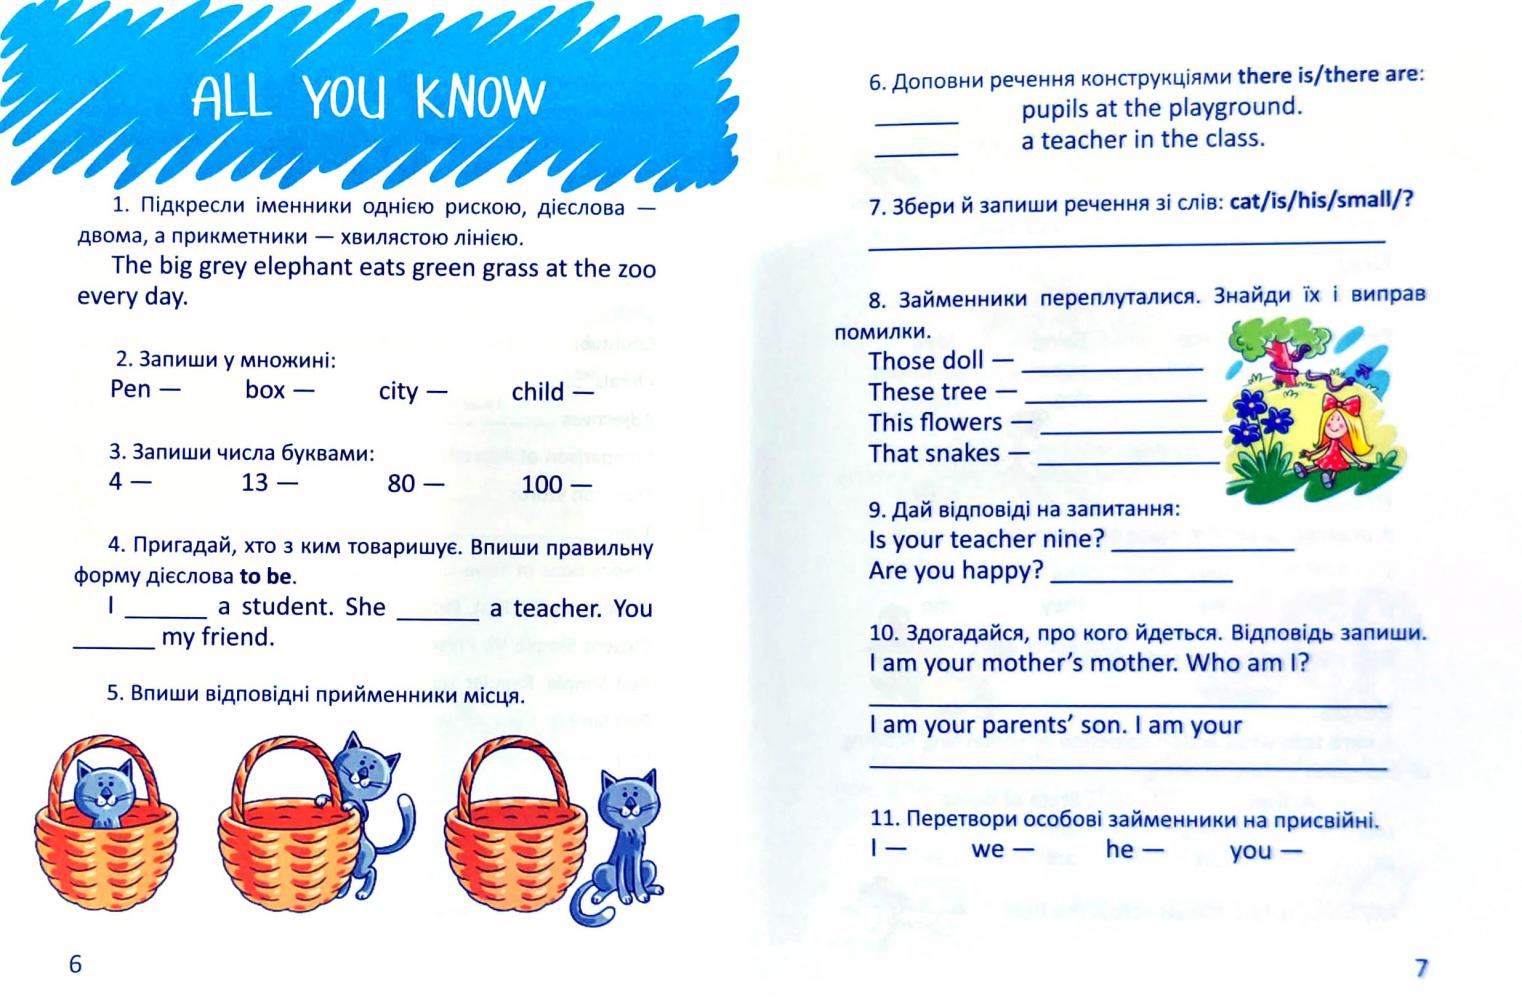 ALL YOU KNOW
1. Підкресли іменники однією рискою, дієслова —
двома, а прикметники — хвилястою лінією.
The big grey elephant eats green grass at the zoo
every day.
2. Запиши у множині:
Pen — box — city — child —
3. Запиши числа буквами:
4 — 13 — 80 — 100 —
4. Пригадай, хто з ким товаришує. Впиши правильну
форму дієслова to be.
I ______ a student. She ______ a teacher. You
______ my friend.
5. Впиши відповідні прийменники місця.
6
6. Доповни речення конструкціями there is/there are:
______ pupils at the playground.
______ a teacher in the class.
7. Збери й запиши речення зі слів: cat/is/his/small/?
8. Займенники переплуталися. Знайди їх і виправ
помилки.
Those doll — ______
These tree — ______
This flowers — ______
That snakes — ______
9. Дай відповіді на запитання:
Is your teacher nine? ______
Are you happy? ______
10. Здогадайся, про кого йдеться. Відповідь запиши.
I am your mother's mother. Who am I?
I am your parents' son. I am your
11. Перетвори особові займенники на присвійні.
I — we — he — you —
7